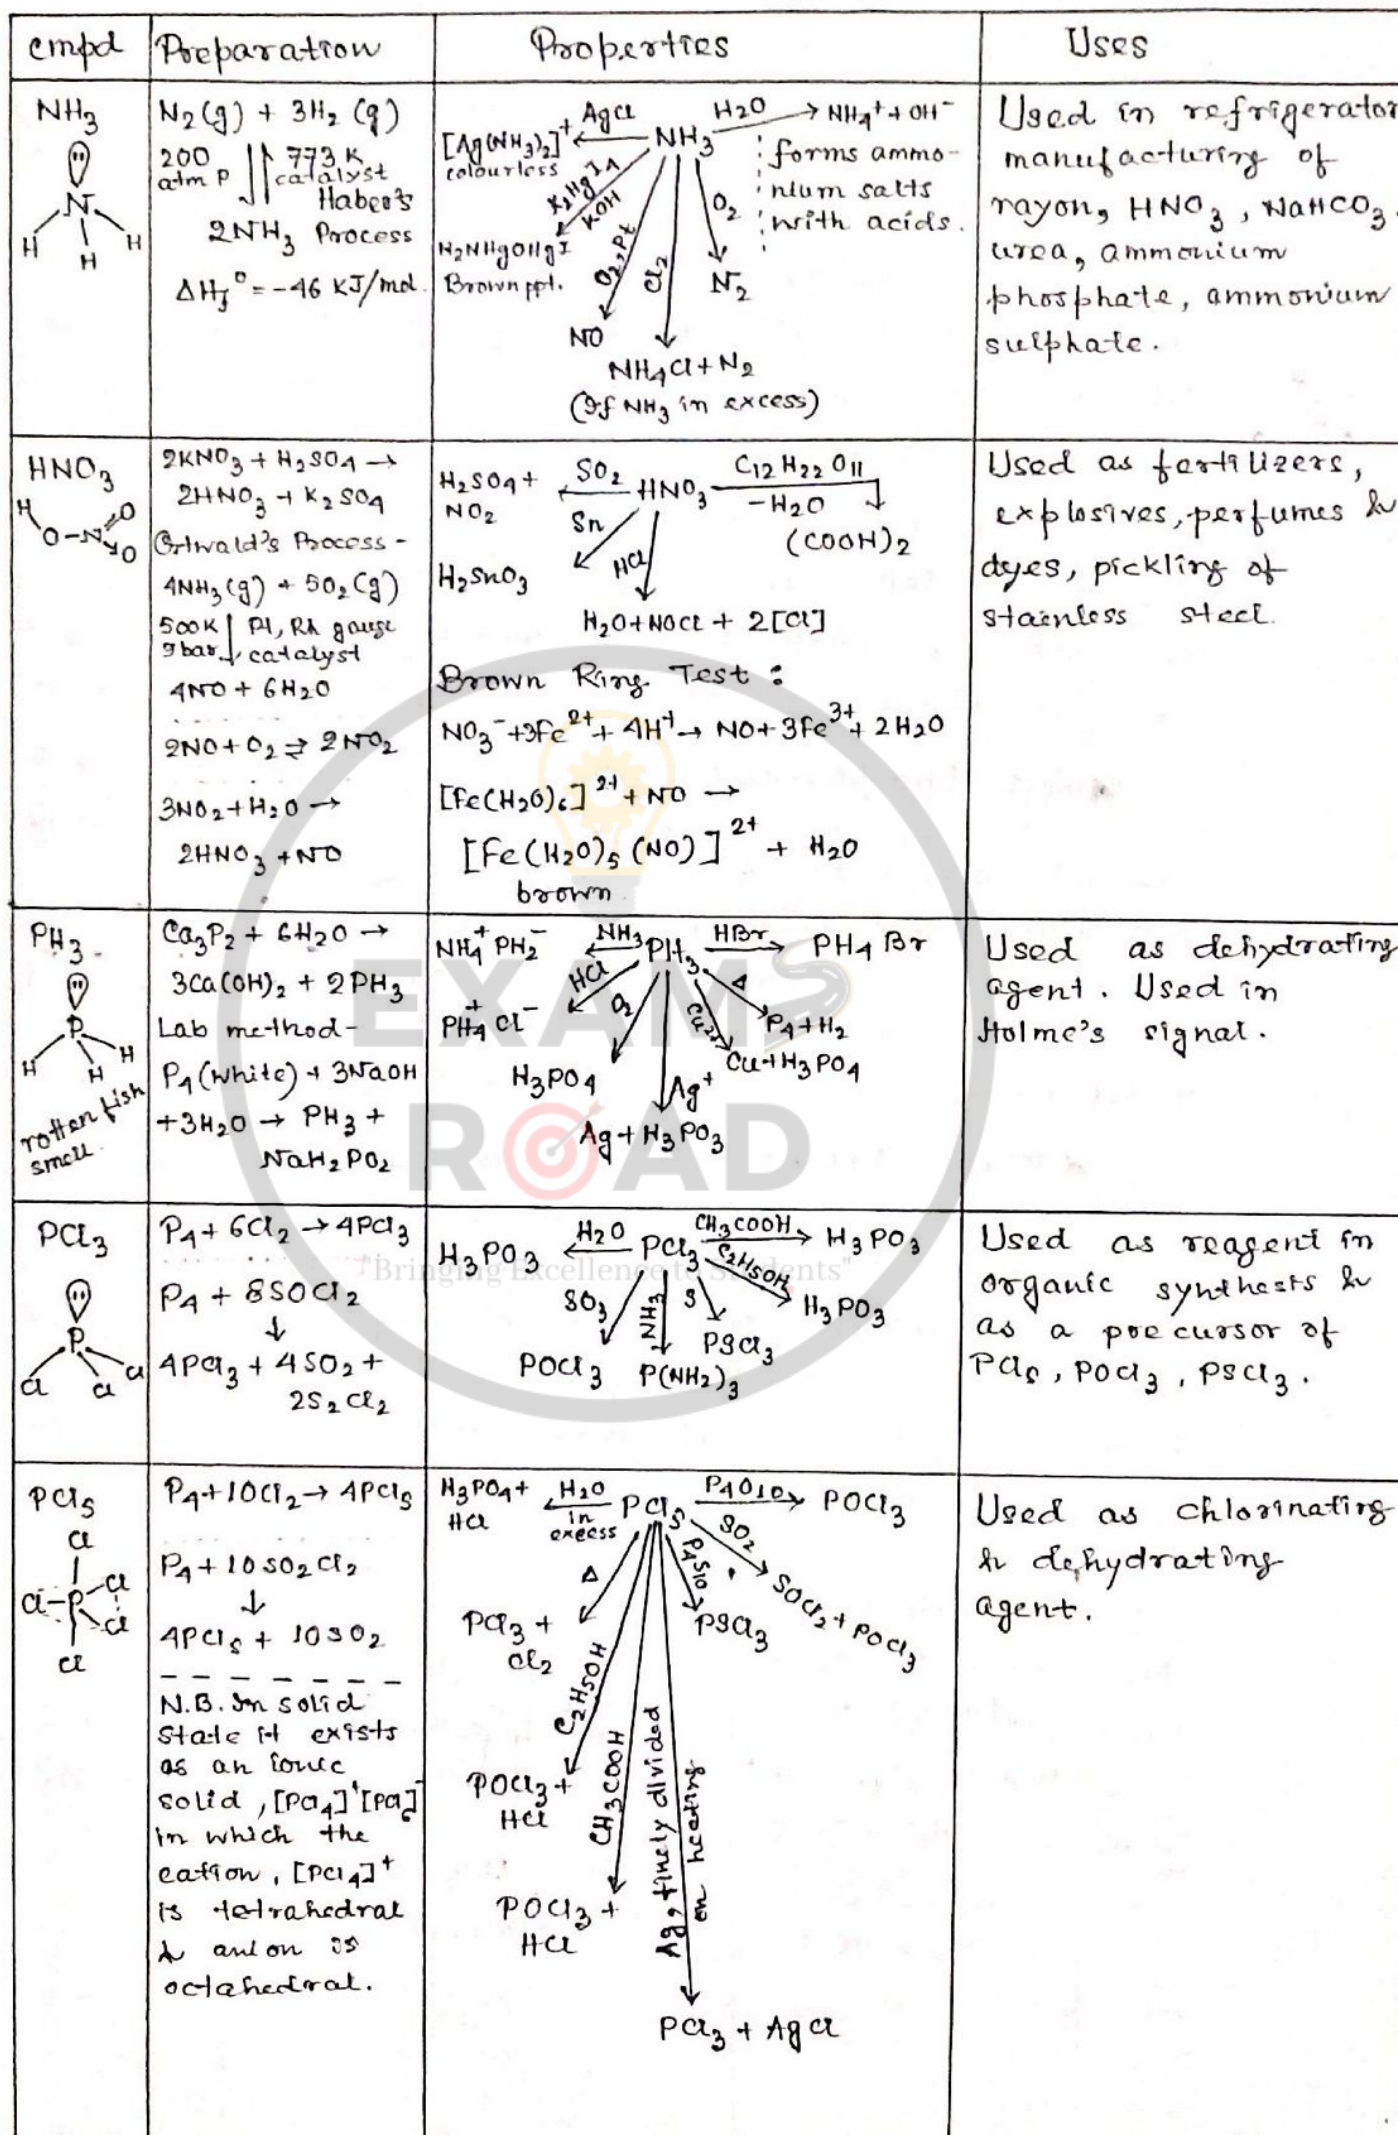 cmpd Preparation Properties Uses
NH3
N
H H H
N2(g) + 3H2 (g)
200 atm P 773 K catalyst
Haber's
2NH3 Process
ΔHf° = -46 KJ/mol.
[Ag(NH3)2]+ AgCl NH3 H2O NH4+ + OH-
colourless
K2HgI4 KOH
H2NHgOHgI
Brown ppt.
O2, Pt
NO
Cl2
NH4Cl + N2
(If NH3 in excess)
O2
N2
forms ammo-
nium salts
with acids.
Used in refrigerator
manufacturing of
rayon, HNO3, NaHCO3,
urea, ammonium
phosphate, ammonium
sulphate.
HNO3
H
O-N O
O
2KNO3 + H2SO4 →
2HNO3 + K2SO4
Ostwald's Process -
4NH3(g) + 5O2(g)
500K Pt, Rh gauge
9bar catalyst
4NO + 6H2O
2NO + O2 ⇌ 2NO2
3NO2 + H2O →
2HNO3 + NO
H2SO4 + NO2 SO2 HNO3 C12H22O11
-H2O
(COOH)2
Sn
H2SnO3
HCl
H2O + NOCl + 2[Cl]
Brown Ring Test :
NO3- + 3Fe2+ + 4H+ → NO + 3Fe3+ + 2H2O
[Fe(H2O)6]2+ + NO →
[Fe(H2O)5(NO)]2+ + H2O
brown
Used as fertilizers,
explosives, perfumes &
dyes, pickling of
stainless steel.
PH3
P
H H H
rotten fish
smell.
Ca3P2 + 6H2O →
3Ca(OH)2 + 2PH3
Lab method-
P4(white) + 3NaOH
+3H2O → PH3 +
NaH2PO2
NH4+ PH2- NH3 PH3 HBr PH4Br
HCl
PH4+ Cl-
O2
H3PO4
Ag+
Ag + H3PO3
Cu2+
Cu + H3PO4
Δ
P4 + H2
Used as dehydrating
agent. Used in
Holme's signal.
EXAMS
ROAD
"Bringing Excellence to Students"
PCl3
P
Cl Cl Cl
P4 + 6Cl2 → 4PCl3
P4 + 8SOCl2
↓
4PCl3 + 4SO2 +
2S2Cl2
H3PO3 H2O PCl3 CH3COOH H3PO3
C2H5OH
H3PO3
SO3
POCl3
NH3
P(NH2)3
S
PSCl3
Used as reagent in
organic synthesis &
as a precursor of
PCl5, POCl3, PSCl3.
PCl5
Cl
Cl-P Cl
Cl
Cl
P4 + 10Cl2 → 4PCl5
P4 + 10SO2Cl2
↓
4PCl5 + 10SO2
N.B. In solid
state it exists
as an ionic
solid, [PCl4]+[PCl6]-
in which the
cation, [PCl4]+
is tetrahedral
& anion is
octahedral.
H3PO4 + HCl H2O in excess PCl5 P4O10 POCl3
SO2
SOCl2 + POCl3
P4S10
PSCl3
Δ
PCl3 +
Cl2
C2H5OH
POCl3 +
HCl
CH3COOH
POCl3 +
HCl
Ag, finely divided
on heating
PCl3 + AgCl
Used as chlorinating
& dehydrating
agent.